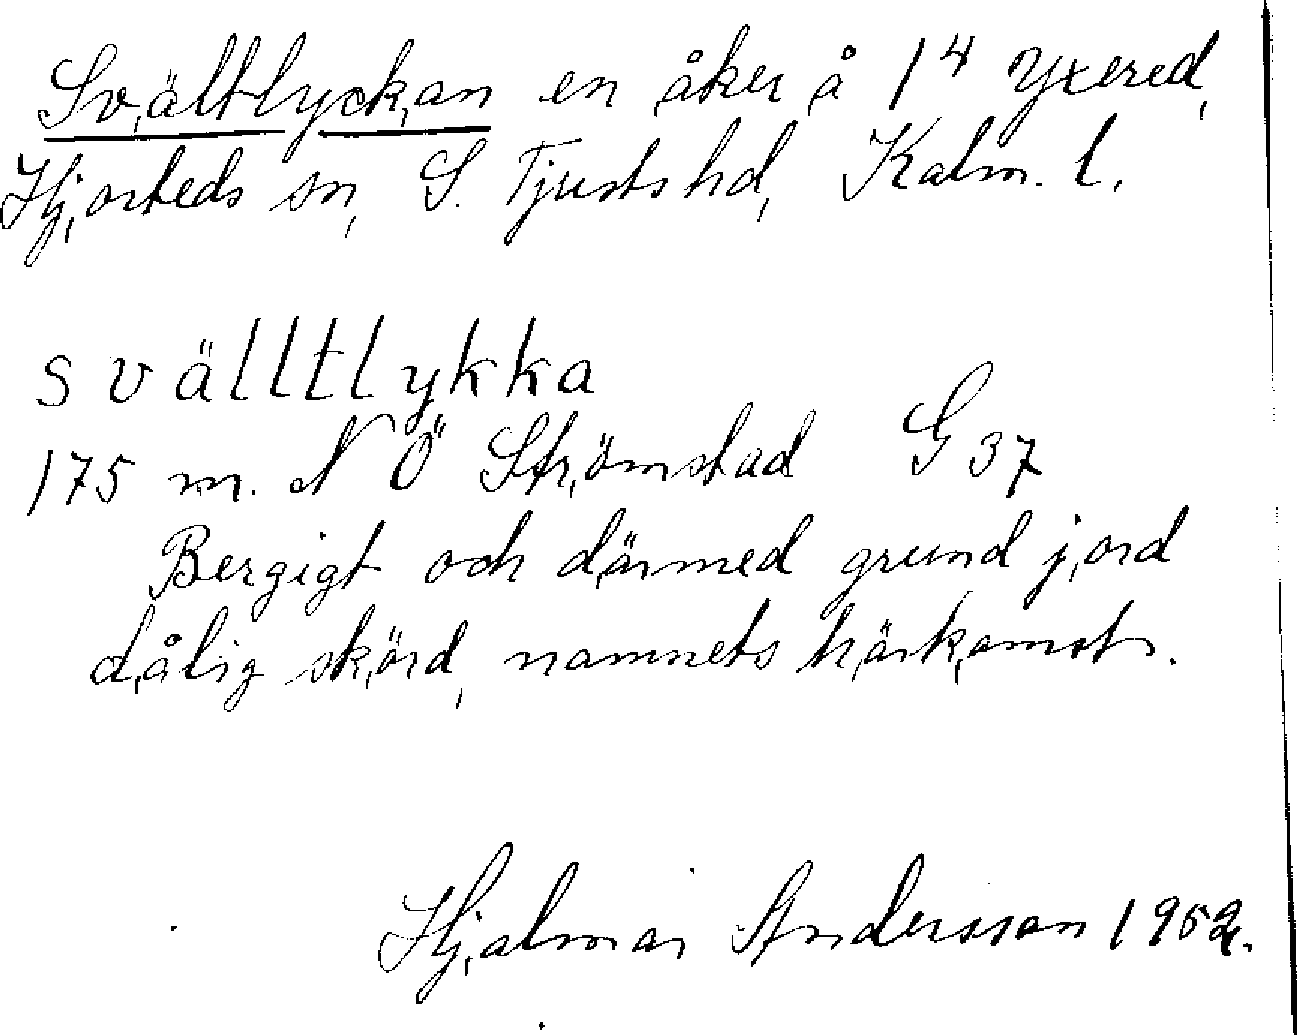 Svältlyckan en åker å 1⁴ Yxered,
Hjorteds sn, S. Tjusts hd, Kalm. l.
svälltlykka
175 m. N Ö Strömstad G 37
Bergigt och därmed grund jord
dålig skörd, namnets härkomst.
Hjalmar Andersson 1952.